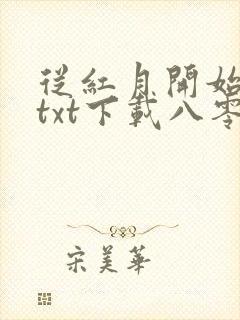 從紅月開始
txt下載八零
宋美華